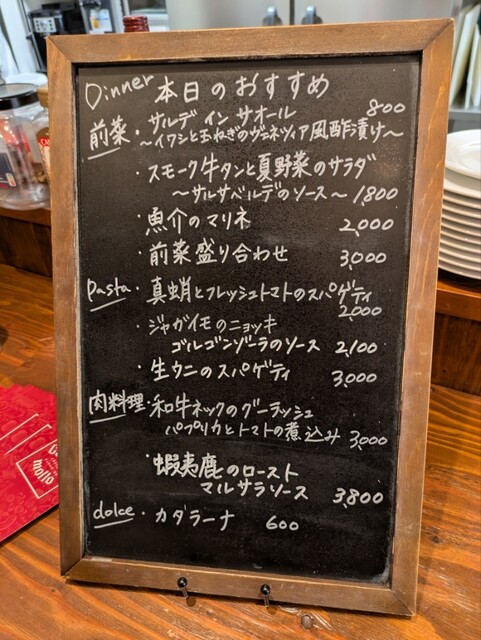 Dinner 本日のおすすめ
前菜・サルデ イン サオール 800
～イワシと玉ねぎのヴェネツィア風酢漬け～
・スモーク牛タンと夏野菜のサラダ
～サルサベルデのソース～ 1,800
・魚介のマリネ 2,000
・前菜盛り合わせ 3,000
Pasta・真蛸とフレッシュトマトのスパゲティ
2,000
・ジャガイモのニョッキ
ゴルゴンゾーラのソース 2,100
・生ウニのスパゲティ 3,000
肉料理・和牛ネックのグーラッシュ
パプリカとトマトの煮込み 3,000
・蝦夷鹿のロースト
マルサラソース 3,800
dolce・カタラーナ 600